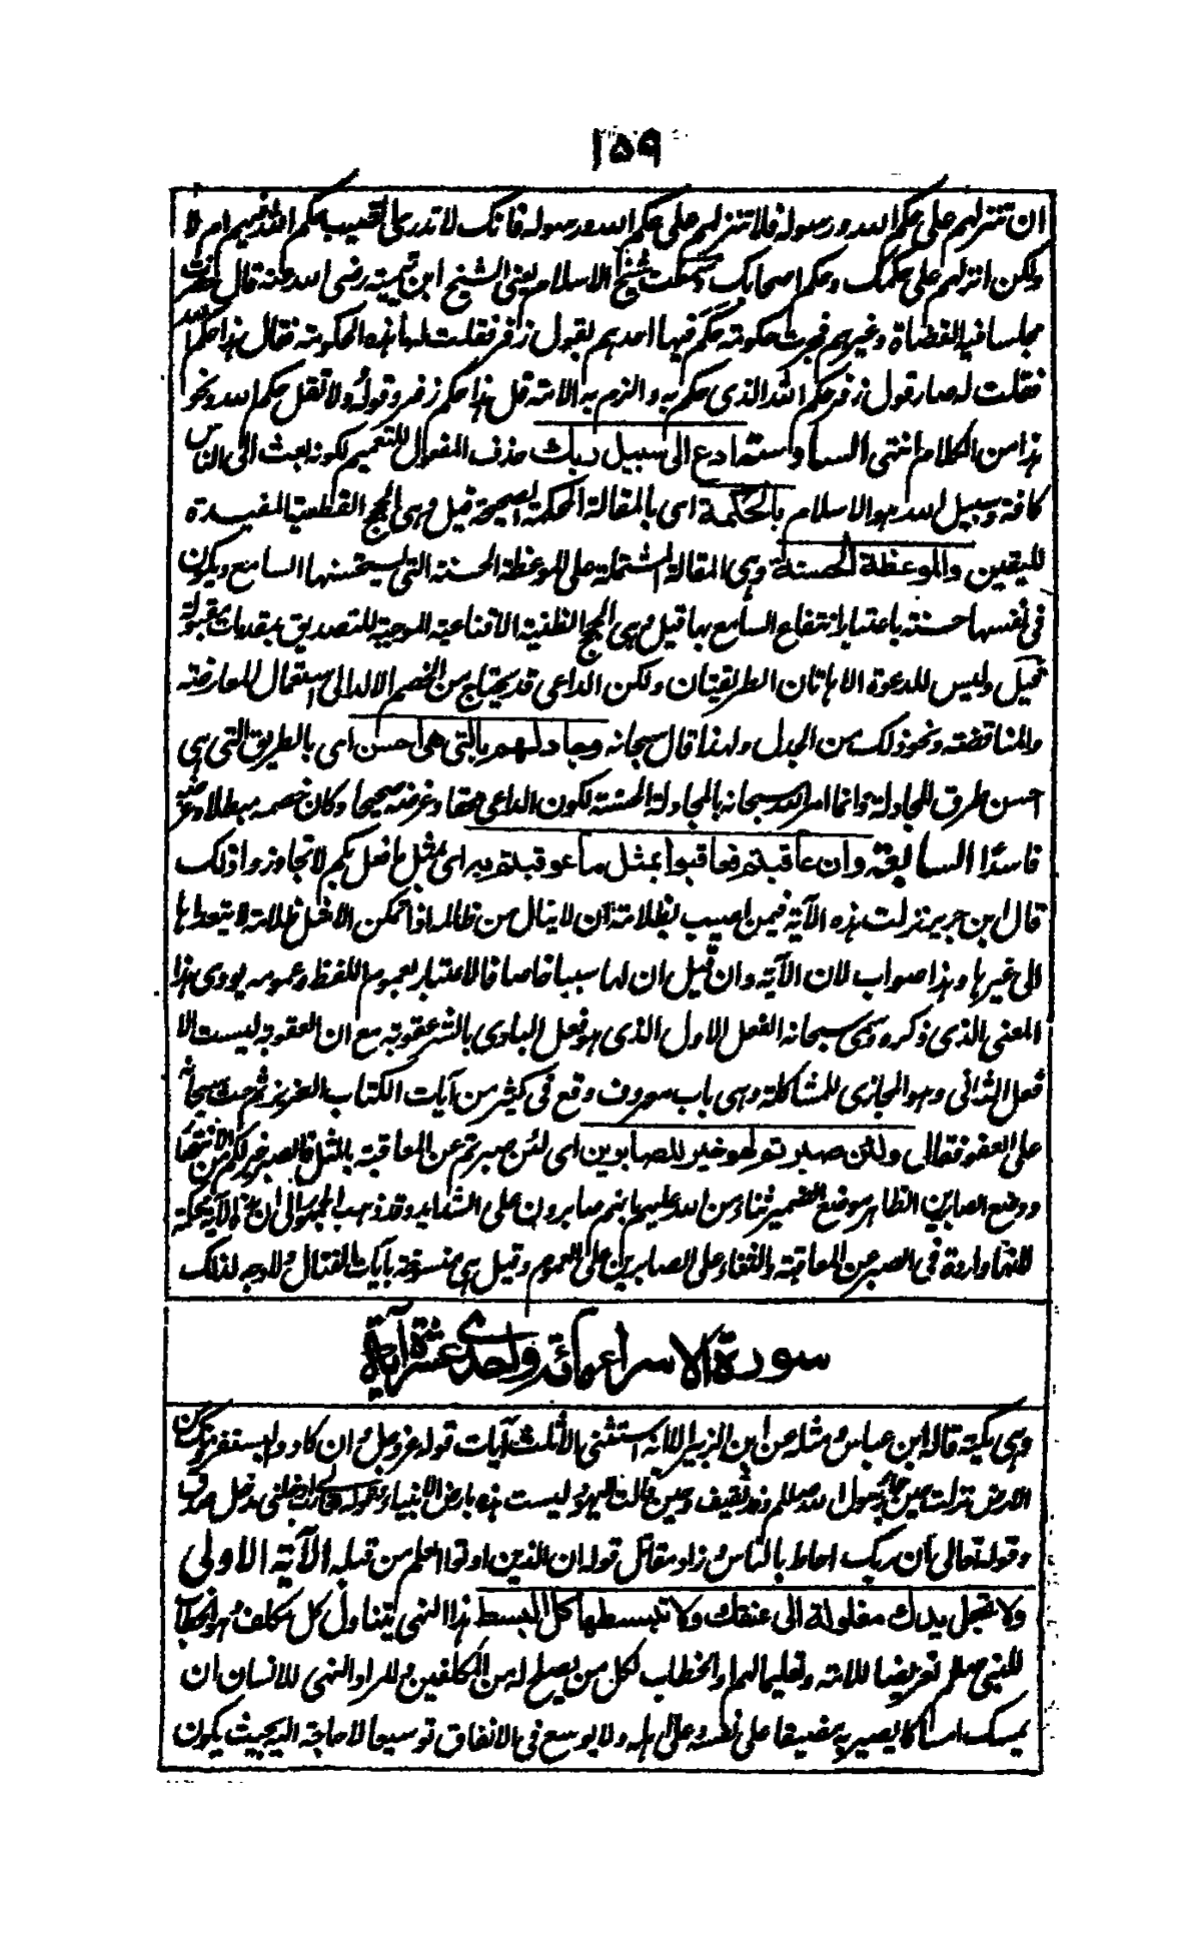 ١٥٩
ان تنزلهم على حكم الله ورسوله فلا تنزلهم على حكم الله ورسوله فانك لا تدري اتصيب حكم الله فيهم ام لا
ولكن انزلهم على حكمك وحكم اصحابك وسمعت شيخ الاسلام يعني الشيخ ابن تيمية رضي الله عنه قال حضرت
مجلسا فيه القضاة وغيرهم فجرت حكومة حكم فيها احدهم بقول زفر فقلت لها هذه الحكومة فقال هذا حكم الله
فقلت له صار قول زفر حكم الله الذي حكم به والزم به الامة قل هذا حكم زفر وقوله ولا تقل حكم الله ونحو
هذا من الكلام انتهى السادسة ادع الى سبيل ربك حذف المفعول للتعميم لكونه بعث الى الناس
كافة وسبيل الله هو الاسلام بالحكمة اي بالمقالة المحكمة الصحيحة قيل وهي الحجج القطعية المفيدة
لليقين والموعظة الحسنة وهي المقالة المشتملة على الموعظة الحسنة التي يستحسنها السامع ويكون
في نفسها حسنة باعتبار انتفاع السامع بها قيل وهي الحجج الظنية الاقناعية الموجبة للتصديق بمقدمات مقبولة
قيل وليس للدعوة الا هاتان الطريقتان ولكن الداعي قد يحتاج مع الخصم الالد الى استعمال المعارضة
والمناقضة ونحو ذلك من الجدل ولهذا قال سبحانه وجادلهم بالتي هي احسن اي بالطريق التي هي
احسن طرق المجادلة وانما امر الله سبحانه بالمجادلة الحسنة لكون الداعي محقا وغرضه صحيحا وكان خصمه مبطلا وغرضه
فاسدا السابعة وان عاقبتم فعاقبوا بمثل ما عوقبتم به اي بمثل ما فعل بكم لا تجاوزوا ذلك
قال ابن جرير نزلت هذه الآية فيمن اصيب بظلامة ان لا ينال من ظالمه اذا تمكن الا مثل ظلامته لا يتعداها
الى غيرها وهذا صواب لان الآية وان قيل ان لها سببا خاصا فالاعتبار بعموم اللفظ وعمومه يودي هذا
المعنى الذي ذكره وسمى سبحانه الفعل الاول الذي هو فعل البادي بالشر عقوبة مع ان العقوبة ليست الا
فعل الثاني وهو المجازي للمشاكلة وهي باب معروف وقع في كثير من آيات الكتاب العزيز ثم حث سبحانه
على العفو فقال ولئن صبرتم لهو خير للصابرين اي لئن صبرتم عن المعاقبة بالمثل فالصبر خير لكم من الانتصاف
ووضع الصابرين الظاهر موضع الضمير ثناء من الله عليهم بانهم صابرون على الشدايد وقد ذهب الجمهور الى ان هذه الآية محكمة
لانها واردة في الصبر عن المعاقبة والثناء على الصابرين على العموم وقيل هي منسوخة بآيات القتال ولا وجه لذلك
سورة الاسراء مائة واحدى عشرة آية
وهي مكية قاله ابن عباس ومثله عن ابن الزبير الا انه استثنى الا ثلث آيات قوله عز وجل وان كادوا ليستفزونك من
الارض نزلت حين جاء رسول الله صلعم وفد ثقيف وحين قالت اليهود ليست هذه بارض الانبياء وقوله رب ادخلني مدخل صدق
وقوله تعالى ان ربك احاط بالناس وزاد مقاتل قوله ان الذين اوتوا العلم من قبله الآية الاولى
ولا تجعل يدك مغلولة الى عنقك ولا تبسطها كل البسط هذا النهي يتناول كل مكلف
للنبي صلعم تعريضا للامة وتعليما لهم والخطاب لكل من يصلح له من المكلفين والمراد النهي للانسان ان
يمسك امساكا يصير به مضيقا على نفسه وعلى اهله ولا يوسع في الانفاق توسيعا لا حاجة اليه بحيث يكون